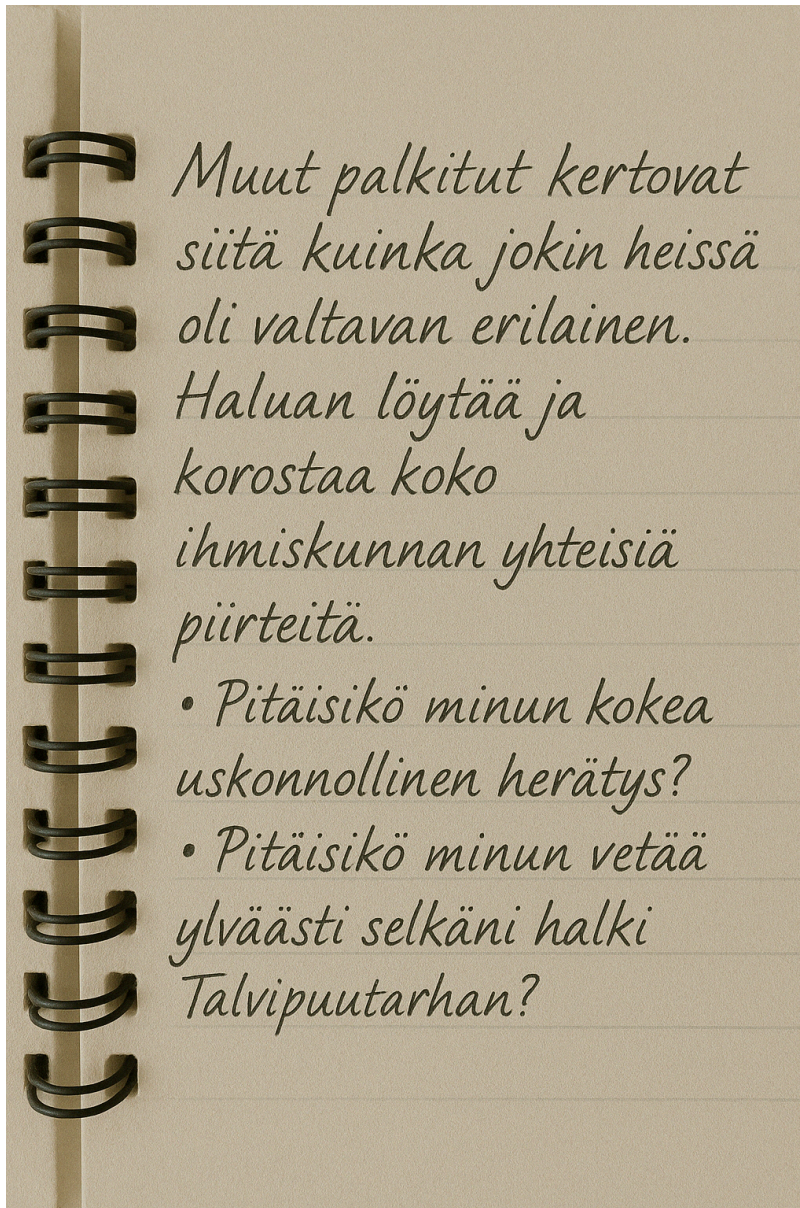 Muut palkitut kertovat
siitä kuinka jokin heissä
oli valtavan erilainen.
Haluan löytää ja
korostaa koko
ihmiskunnan yhteisiä
piirteitä.
• Pitäisikö minun kokea
uskonnollinen herätys?
• Pitäisikö minun vetää
ylväästi selkäni halki
Talvipuutarhan?